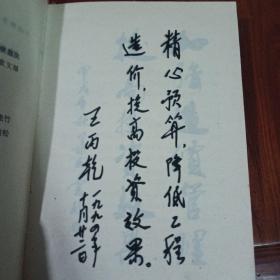 精心预算，降低工程
造价，提高投资效果。
王丙乾
一九九四年
十月廿二日